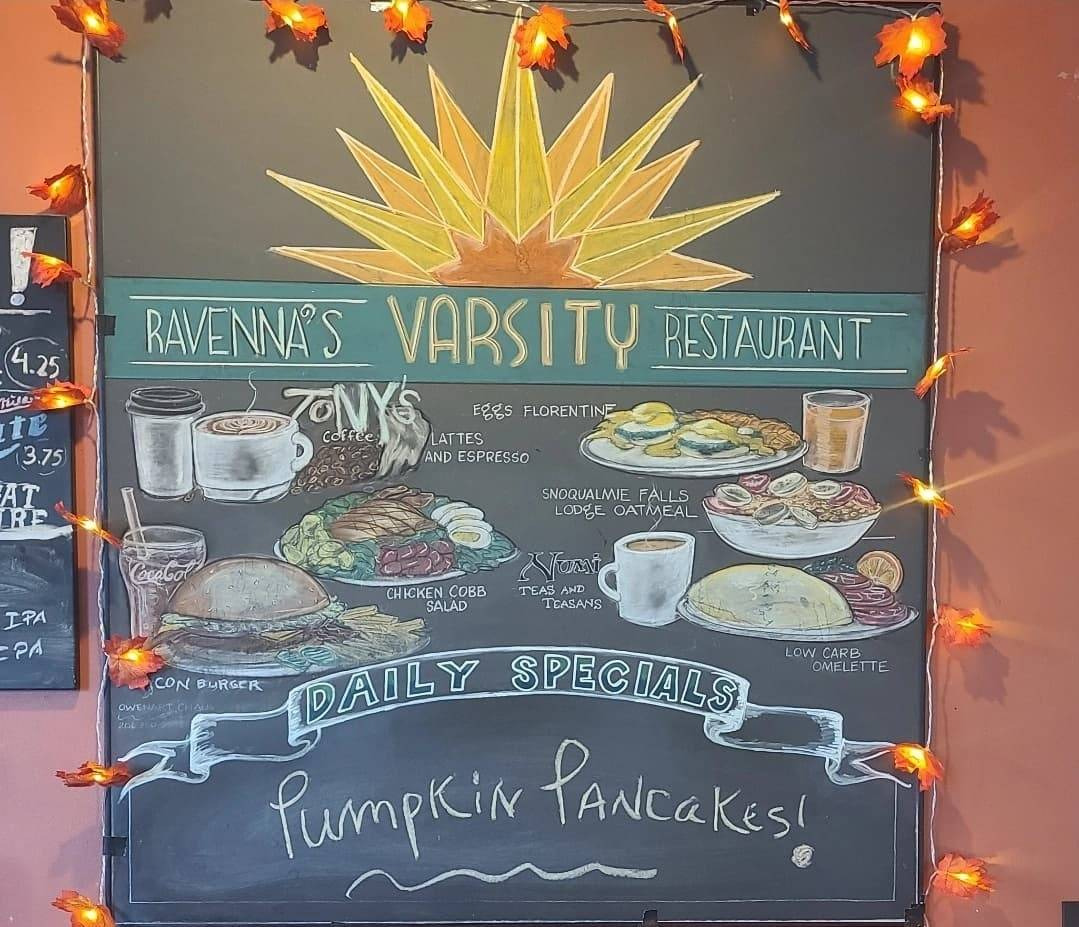 !
4.25
3.75
IPA
RAVENNA'S VARSITY RESTAURANT
TONY'S
Coffee
LATTES
AND ESPRESSO
EGGS FLORENTINE
SNOQUALMIE FALLS
LODGE OATMEAL
CocaCola
CHICKEN COBB
SALAD
Numi
TEAS AND
TEASANS
LOW CARB
OMELETTE
CON BURGER
DAILY SPECIALS
PUMPKIN PANCAKES!